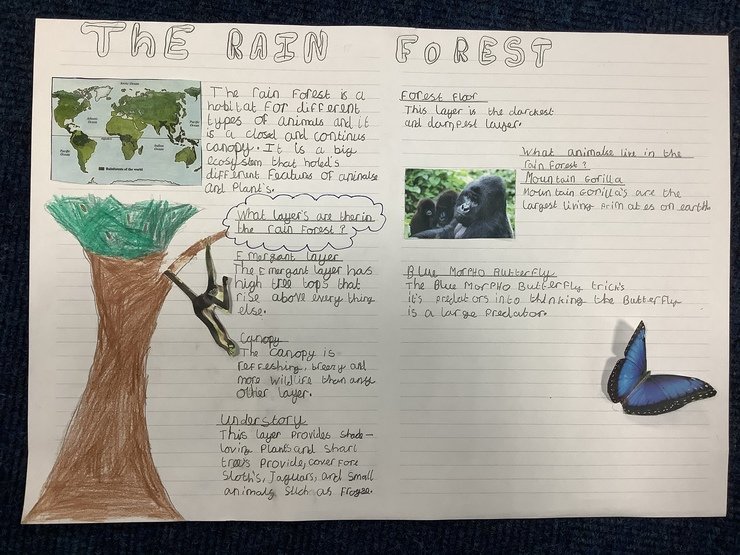 The RAIN FOREST
The rain forest is a
habitat for different
types of animals and it
is a closed and continus
canopy. It is a big
ecosystem that holed's
different features of animalse
and Plant's.
What layer's are therin
the rain forest?
Emergant layer
The Emergant layer has
high tree tops that
rise above every thing
else.
Canopy
The canopy is
refreshing, breezy and
more wildlife than any
other layer.
understory
This layer provides shade-
loving plants and shart
trees provide, cover fore
Sloth's, Jaguars, and small
animals such as frogse.
Forest floor
This layer is the darkest
and dampest layer.
What animalse live in the
rain forest?
Mountain Gorilla
Mountain Gorilla's are the
largest living primates on earth
Blue Morpho Butterfly
The Blue Morpho Butterfly trick's
it's predators into thinking the Butterfly
is a large predator.